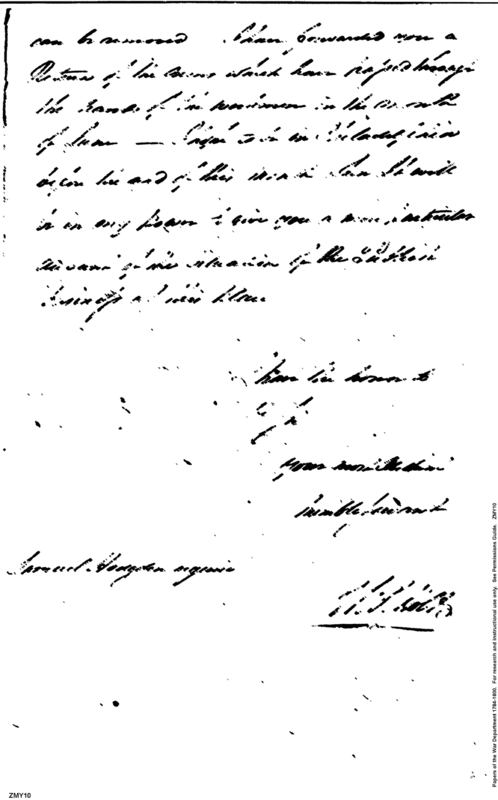 can be removed I have forwarded you a
Return of the arms which have passed through
the hands of the workmen in the month
of June — I hope to be in Philadelphia
before the end of this when I will
be in my power to give you a more particular
account of the situation of the
business at this place
I have the honor to
be
your most Obedient
humble servant
Samuel Hodgdon esquire
ZMY10
Papers of the War Department 1784-1800. For research and instructional use only. See Permissions Guide. ZMY10